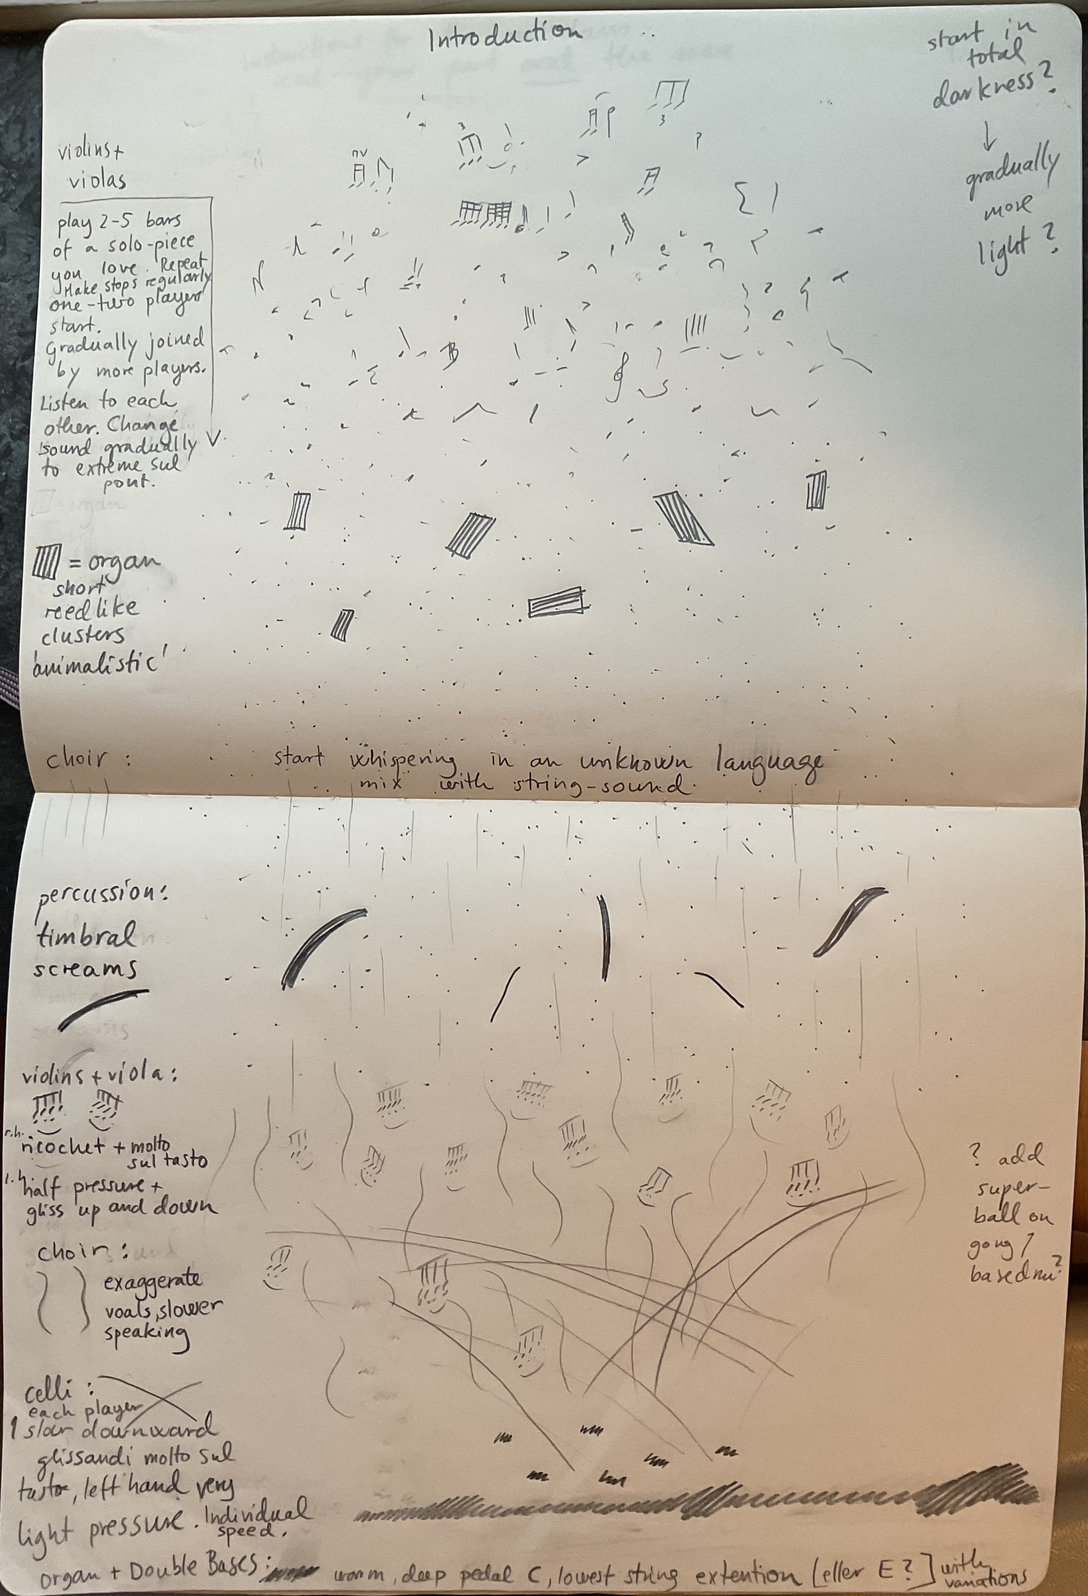 Introduction
start in
total
darkness?
gradually
more
light?
violins +
violas
play 2-5 bars
of a solo-piece
you love. Repeat
Make stops regularly
one-two players
start.
Gradually joined
by more players.
Listen to each
other. Change
sound gradually
to extreme sul
pont.
= organ
short
reedlike
clusters
'animalistic'
choir : start whispering in an unknown language
mix with string-sound.
percussion:
timbral
screams
violins + viola:
r.h. ricochet + molto
sul tasto
l.h. half pressure +
gliss up and down
choir:
exaggerate
voals, slower
speaking
? add
super-
ball on
gong/
celli :
each player
1 slow downward
glissandi molto sul
tasto, left hand very
light pressure. Individual
speed.
Organ + Double Bases: warm, deep pedal C, lowest string extention [eller E?] with
variations